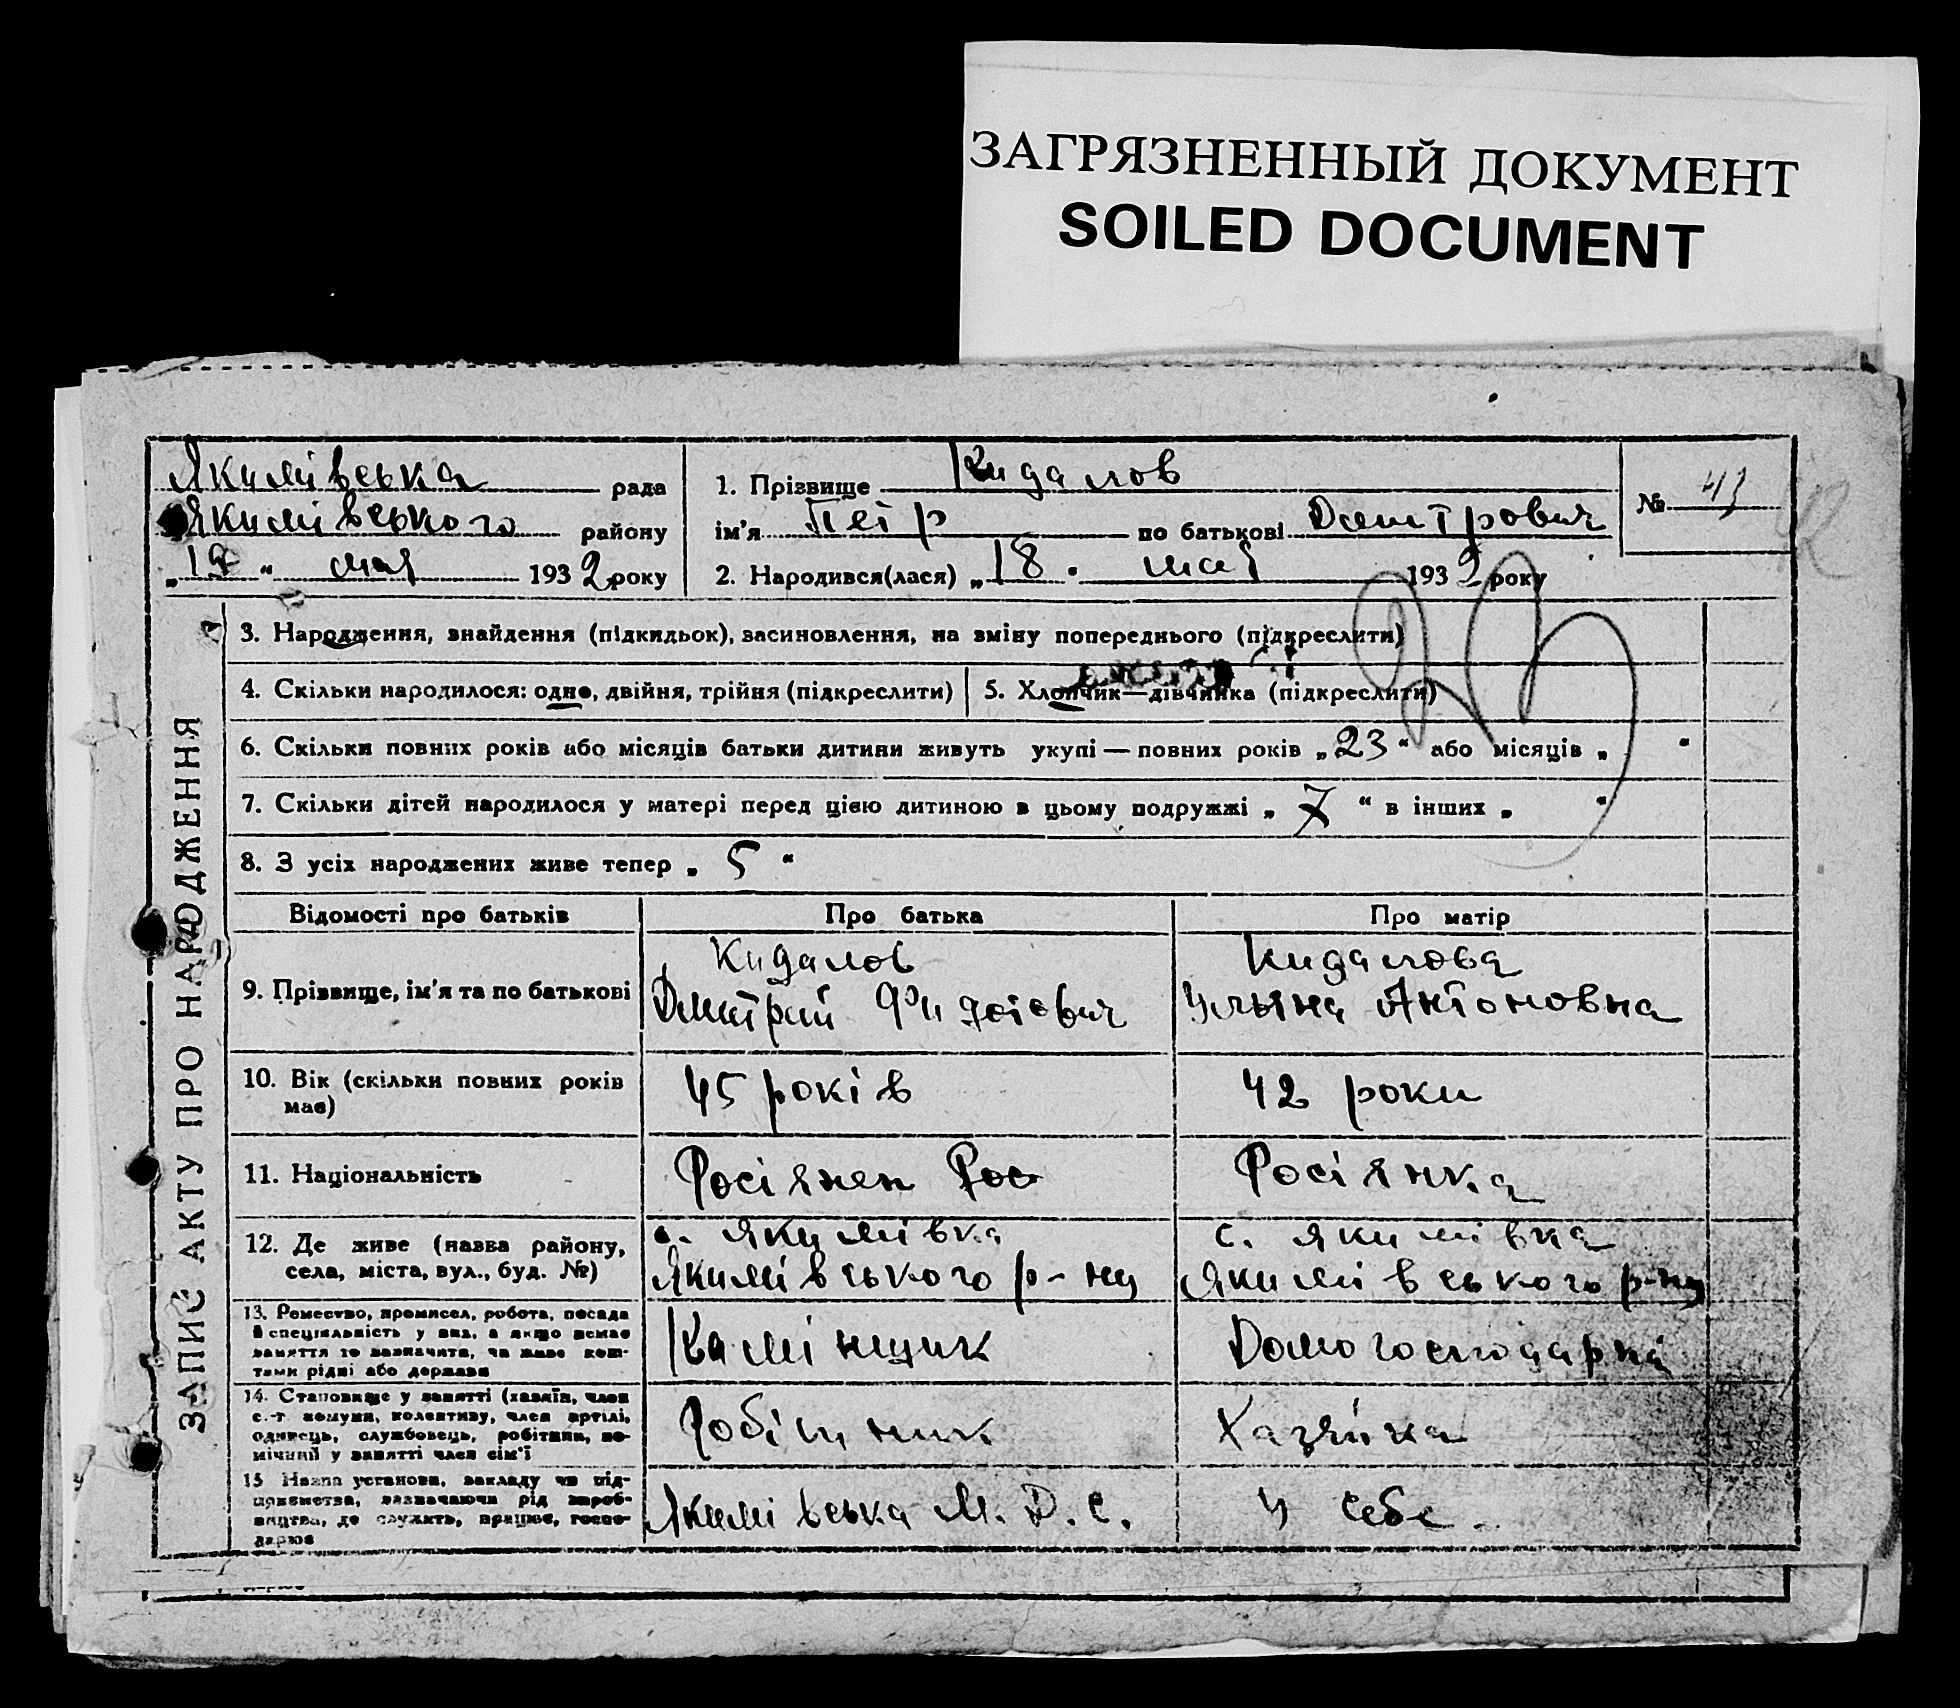 ЗАГРЯЗНЕННЫЙ ДОКУМЕНТ
SOILED DOCUMENT
Якимівська рада
Якимівського району
„19“ мая 1932 року
1. Прізвище Кидалов
ім'я Петр по батькові Дмитрович
2. Народився(лася) „18“ мая 1932 року
№ 43
ЗАПИС АКТУ ПРО НАРОДЖЕННЯ
3. Народження, знайдення (підкидьок), засиновлення, на зміну попереднього (підкреслити)
4. Скільки народилося: одне, двійня, трійня (підкреслити)
5. Хлопчик—дівчинка (підкреслити)
6. Скільки повних років або місяців батьки дитини живуть укупі — повних років „23“ або місяців „ “
7. Скільки дітей народилося у матері перед цією дитиною в цьому подружжі „7“ в інших „ “
8. З усіх народжених живе тепер „5“
Відомості про батьків Про батька Про матір
9. Прізвище, ім'я та по батькові
Кидалов
Дмитрий
Кидалова
Ульяна Антоновна
10. Вік (скільки повних років
має)
45 років
42 роки
11. Національність
Росіянен Рос
Росіянка
12. Де живе (назва району,
села, міста, вул., буд. №)
с. Якимівка
Якимівського р-ну
с. Якимівка
Якимівського р-ну
13. Ремество, промисел, робота, посада
й спеціяльність у них, а якщо немає
заняття то зазначити, чи живе кош-
тами рідні або держави
Камінщик
Домогосподарка
14. Становище у занятті (хазяїн, член
с.-г. комуни, колективу, член артілі,
одинець, службовець, робітник, по-
мічний у занятті член сім'ї
Робітник
Хазяйка
15 Назва установи, закладу чи під-
приємства, зазначаючи рід вироб-
ництва, де служить, працює, госпо-
дарює
Якимівська М. Д. С.
У себе